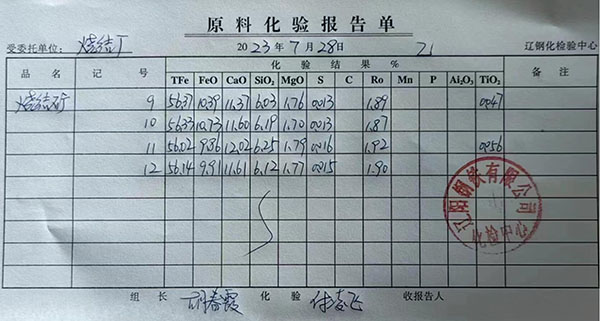 原料化验报告单
受委托单位: 烧结厂 2023年7月28日 乙 辽钢化检验中心
品名 记号 化验结果% 备注
TFe FeO CaO SiO₂ MgO S C Ro Mn P Al₂O₃ TiO₂
烧结矿 9 56.37 10.39 11.37 6.03 1.76 0.013 1.89 0.047
10 56.33 10.73 11.60 6.19 1.70 0.013 1.87
11 56.02 9.86 12.02 6.25 1.79 0.016 1.92 0.056
12 56.14 9.91 11.61 6.12 1.77 0.015 1.90
辽阳钢铁有限公司
化检中心
组长 胡春霞 化验 收报告人